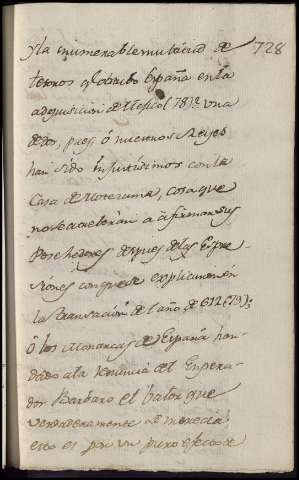 728
y la inumerable multitud de
tesoros q.e atrahido España en la
adquisicion de Mexico (78): una
de dos, pues, ó nuestros Reyes
han sido injustisimos con la
Casa de Motezuma, cosa que
no se atreberàn a afirmar sus
Posehedores despues de las Expre
siones con que se explicaron en
la Transación de el año de 612 (79);
ó los Monarcas de España han
dado a la Renuncia del Empera-
dor Barbaro el balor que
verdaderamente merecia
esto es por un puro efecto de